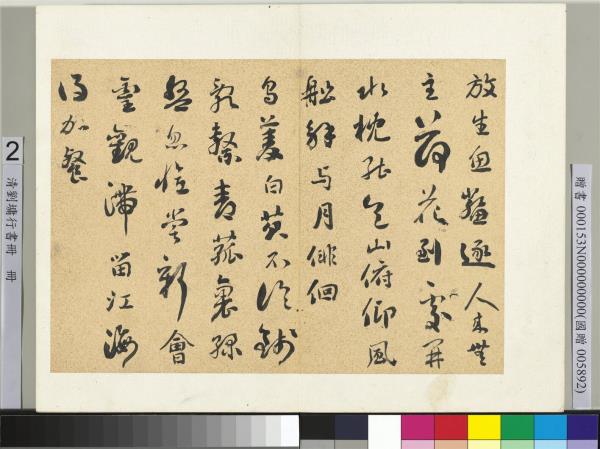 放生魚鼈逐人來無
主荷花到處開
水枕能令山俯仰風
船解与月徘徊
烏菱白芡不論錢
亂繫青菰裹綠
盤忽憶嘗新會
靈觀滯留江海
得加餐
2
清劉墉行書冊 冊
贈書 000153N000000000(國贈 005892)